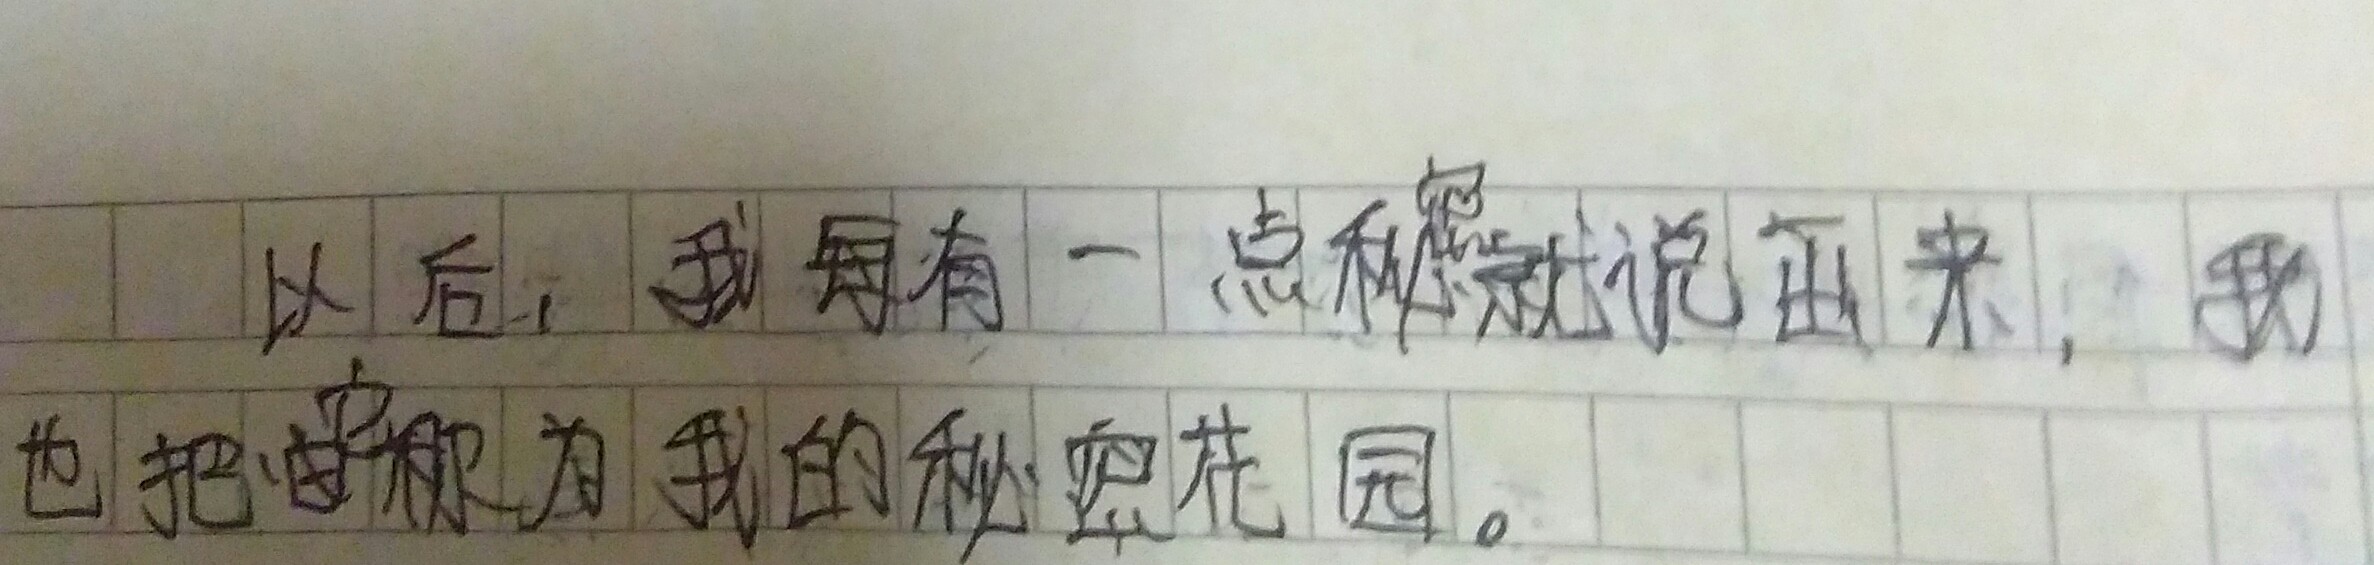 以后，我每有一点秘密就说出来，我
也把它称为我的秘密花园。